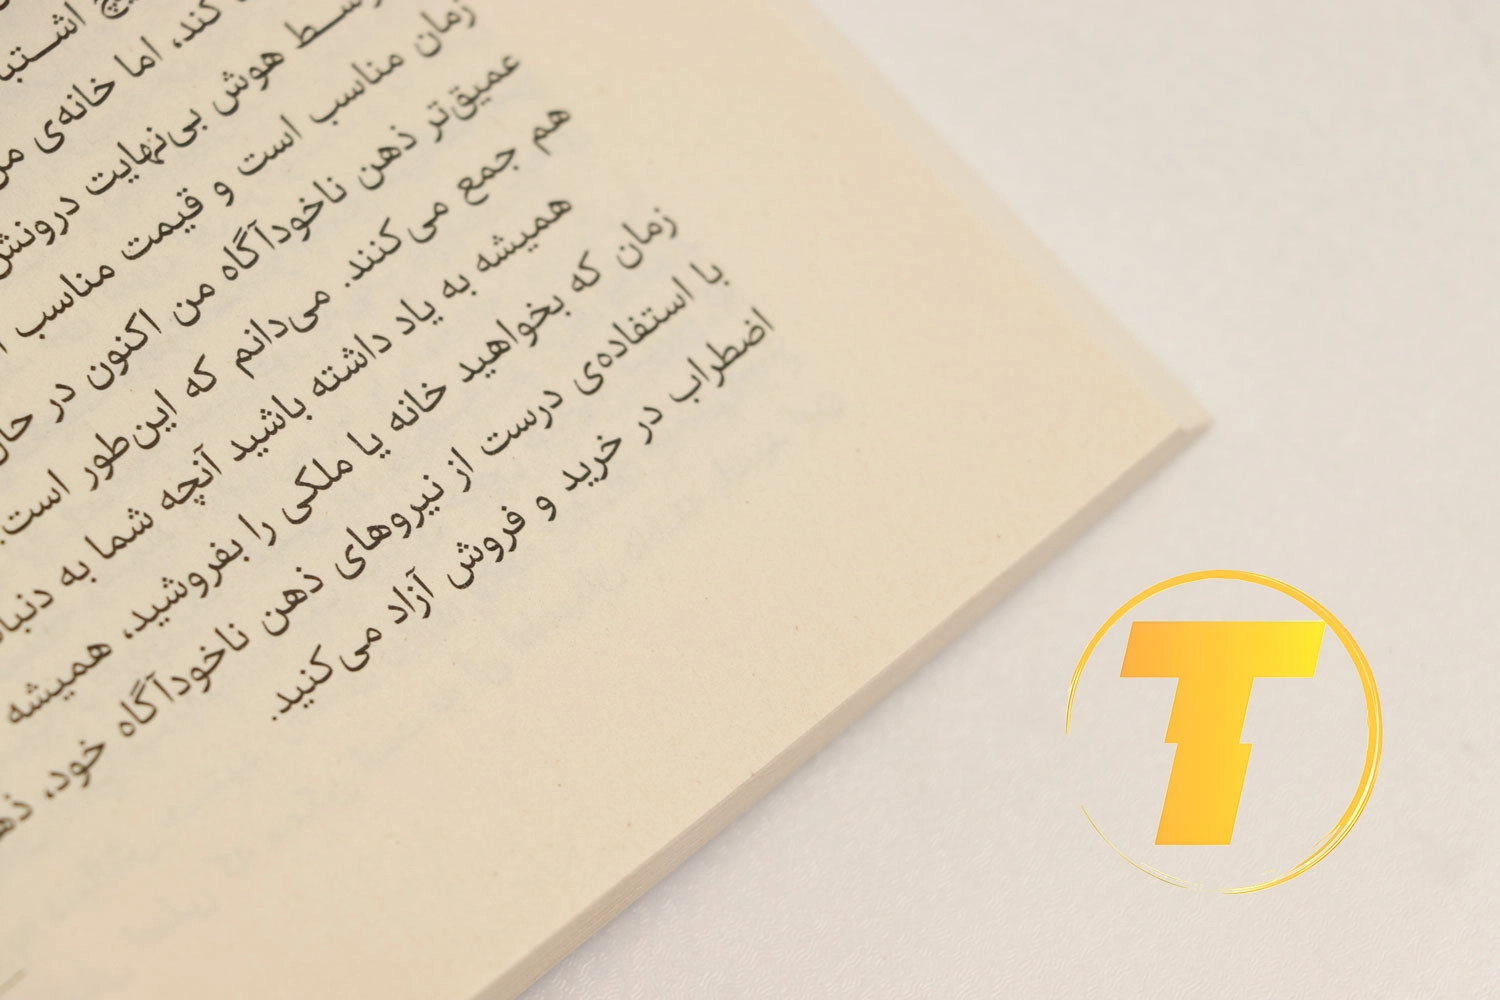 اشتبا
کند، اما خانه‌ی من
هوش بی‌نهایت درونش
زمان مناسب است و قیمت مناسب
عمیق‌تر ذهن ناخودآگاه من اکنون در حال
هم جمع می‌کنند. می‌دانم که این‌طور است.
همیشه به یاد داشته باشید آنچه شما به دنبال
زمان که بخواهید خانه یا ملکی را بفروشید، همیشه
با استفاده‌ی درست از نیروهای ذهن ناخودآگاه خود،
اضطراب در خرید و فروش آزاد می‌کنید.
T